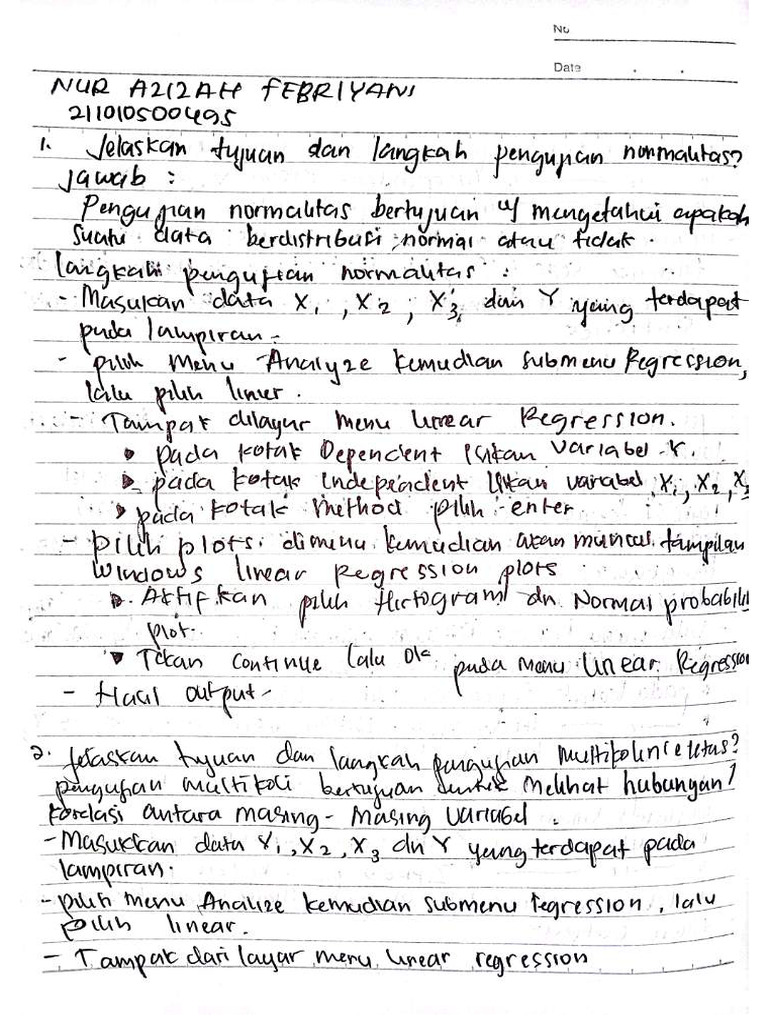 No
Date
NUR AZIZAH FEBRIYANI
211010500495
1. Jelaskan tujuan dan langkah pengujian normalitas?
Jawab :
Pengujian normalitas bertujuan u/ mengetahui apakah
suatu data berdistribusi normal atau tidak.
langkah pengujian normalitas :
- Masukan data X1, X2, X3, dan Y yang terdapat
pada lampiran.
- pilih Menu Analyze kemudian submenu Regression,
lalu pilih linier.
- Tampak dilayar menu linear Regression.
• pada kotak Dependent isikan variabel Y.
• pada kotak independent isikan variabel X1, X2, X3
• pada kotak method pilih enter
- pilih plots dimenu kemudian akan muncul tampilan
windows linear Regression plots
• Aktifkan pilih Histogram dn Normal probabili
plot.
• Tekan continue lalu Ok pada menu linear Regression
- Hasil output -
2. Jelaskan tujuan dan langkah pengujian
pengujian multikoli bertujuan untuk melihat hubungan/
korelasi antara masing - masing variabel.
- Masukkan data X1, X2, X3 dn Y yang terdapat pada
lampiran.
- pilih menu Analize kemudian submenu regression, lalu
pilih linear.
- Tampak dari layar menu linear regression